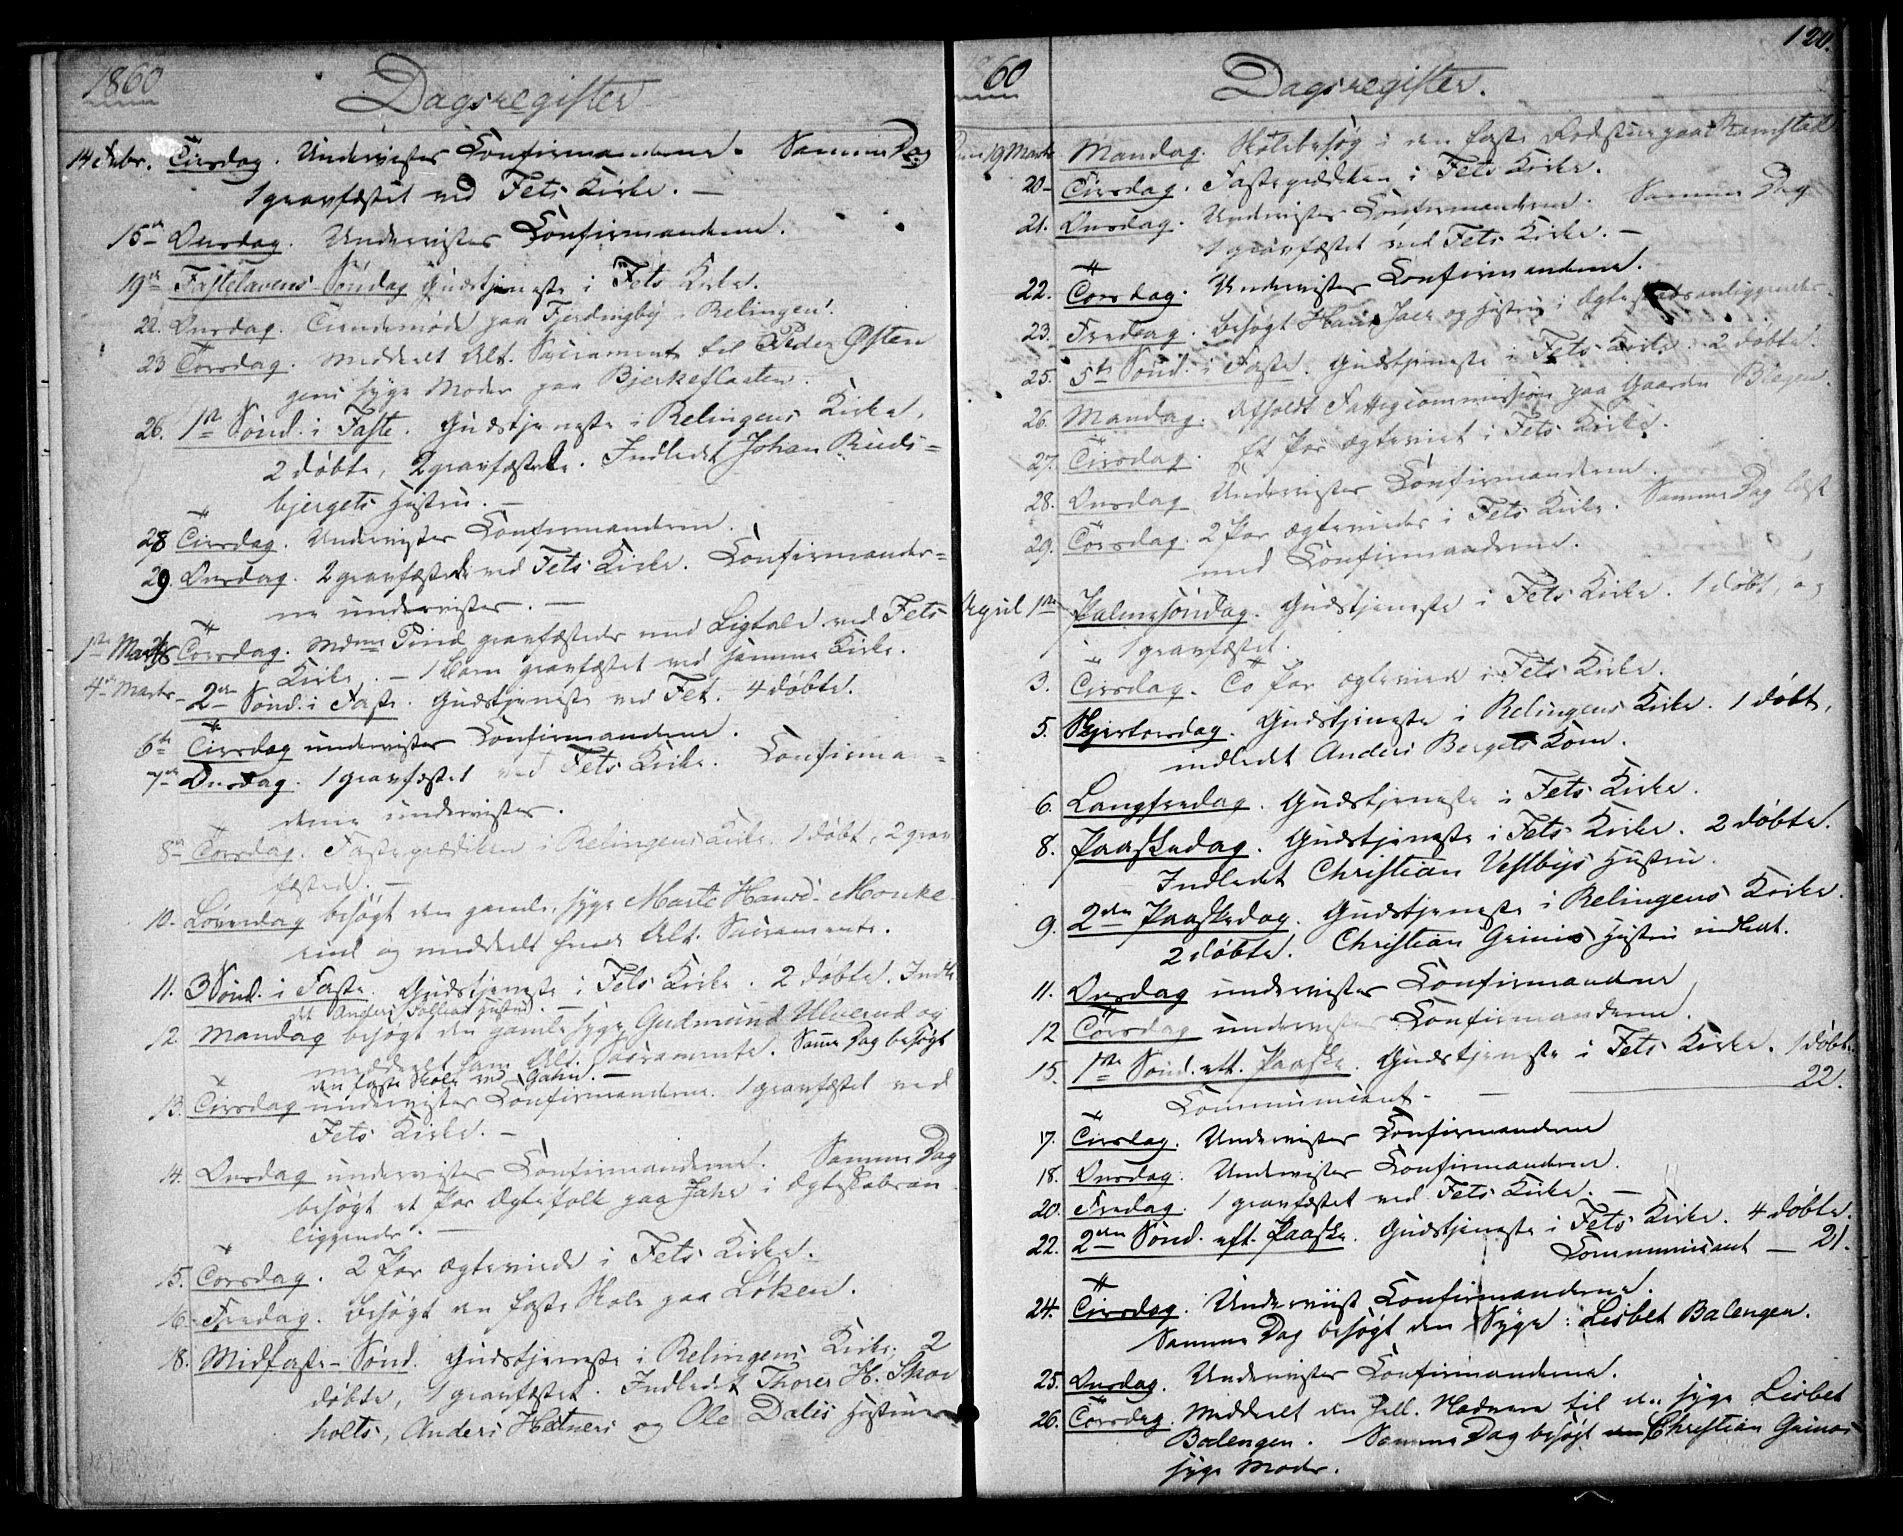 1860
Dagsregister
14 Febr. Tirsdag. Undervistes Confirmanderne. Samme Dag
1 gravfæstet ved Fets Kirke. —
15de Onsdag. Undervistes Confirmanderne.
19de Fastelavens-Søndag Gudstjeneste i Fets Kirke.
22. Onsdag. Tiendemøde paa Fjerdingby i Relingen.
23 Torsdag. Meddeelt Alt. Sacramente til Peder Østen
gens syge Moder paa Bjerkeflaaten.
26. 1ste Sønd. i Faste. Gudstjeneste i Relingens Kirke.
2 døbte, 2 gravfæstede. Indledet Johan Ruds-
bjergets Hustru. —
28 Tirsdag. Undervistes Confirmanderne.
29. Onsdag. 2 gravfæstede ved Fets Kirke. Confirmander-
ne undervistes. —
1ste Marts Torsdag. Mdme Pind gravfæstedes med Ligtale ved Fets
Kirke. — 1 Barn gravfæstet ved samme Kirke.
4de Marts - 2den Sønd. i Faste. Gudstjeneste ved Fet. 4 døbte.
6te Tirsdag undervistes Confirmanderne.
7de Onsdag. 1 gravfæstet ved Fets Kirke. Confirman-
derne undervistes.
8de Torsdag. Fasteprædiken i Relingens Kirke. 1 døbt, 2 grav
fæstede. —
10. Løverdag besøgt den gamle, syge Marte Hansd. Monke
rud og meddeelt hende Alt. Sacramente.
11. 3 Sønd. i Faste. Gudstjeneste i Fets Kirke. 2 døbte. Indle
det Anders Hustru. —
12. Mandag besøgt den gamle syge Gudmund Ulverud og
meddeelt ham Alt. Sacramente. Samme Dag besøgt
den faste Skole ved Gahn. —
13. Tirsdag undervistes Confirmanderne. 1 gravfæstet ved
Fets Kirke. —
14. Onsdag undervistes Confirmanderne. Samme Dag
besøgt et Par Ægtefolk paa Jahr i Ægteskabsan
liggender. —
15. Torsdag. 2 Par ægteviede i Fets Kirke.
16. Fredag. Besøgt en fast Skole paa Løken.
18. Midfaste-Sønd. Gudstjeneste i Relingens Kirke. 2
døbte, 1 gravfæstet. Indledet Thorer H. Skov
holts, Anders Hetners og Ole Dalis Hustruer
60
Dagsregister.
120.
19 Marts Mandag. Skolebesøg i den faste Rodskue paa Ramstad
20- Tirsdag. Fasteprædiken i Fets Kirke.
21. Onsdag. Undervistes Confirmanderne. Samme Dag
1 gravfæstet ved Fets Kirke. —
22. Torsdag. Undervistes Confirmanderne.
23. Fredag. Besøgt Hans Jaer og Hustru i Ægteskabsanliggender.
25. 5te Sønd. i Faste. Gudstjeneste i Fets Kirke. 2 døbte.
26. Mandag. Afholdt Fattigcommission paa Gaarden Biegen.
27. Tirsdag. Et Par ægteviet i Fets Kirke.
28. Onsdag Undervistes Confirmanderne.
29. Torsdag. 2 Par ægteviedes i Fets Kirke. Samme Dag læst
med Confirmanderne.
April 1ste Palmesøndag. Gudstjeneste i Fets Kirke. 1 døbt og
1 gravfæstet.
3. Tirsdag. To Par ægteviede i Fets Kirke.
5. Skjertorsdag. Gudstjeneste i Relingens Kirke. 1 døbt,
indledet Anders Bergets Kone.
6. Langfredag. Gudstjeneste i Fets Kirke.
8. Paaskedag. Gudstjeneste i Fets Kirke. 2 døbte.
Indledet Christian Vestbys Hustru.
9. 2den Paaskedag. Gudstjeneste i Relingens Kirke.
2 døbte. Christian Grinis Hustru indledt.
11. Onsdag undervistes Confirmanderne
12 Torsdag undervistes Confirmanderne.
15. 1ste Sønd. eft. Paaske. Gudstjeneste i Fets Kirke. 1 døbt.
Communicant. — 22.
17. Tirsdag. Undervistes Confirmanderne
18. Onsdag. Undervistes Confirmanderne.
20. Fredag. 1 gravfæstet ved Fets Kirke. —
22. 2den Sønd. eft. Paaske. Gudstjeneste i Fets Kirke. 4 døbte.
Communicant — 21.
24. Tirsdag. Underviist Confirmanderne.
Samme Dag besøgt den Syge: Lisbet Balengen.
25. Onsdag. Undervistes Confirmanderne.
26. Torsdag. Meddeelt den hell. Nadvere til den syge Lisbet
Balengen. Samme Dag besøgt Christian Grinis
syge Moder.